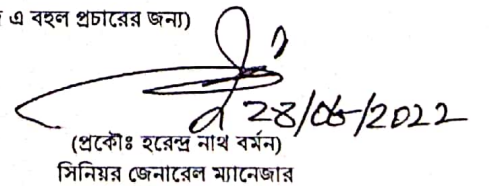 এ বহুল প্রচারের জন্য)
28/06/2022
(প্রকৌঃ হরেন্দ্র নাথ বর্মন)
সিনিয়র জেনারেল ম্যানেজার